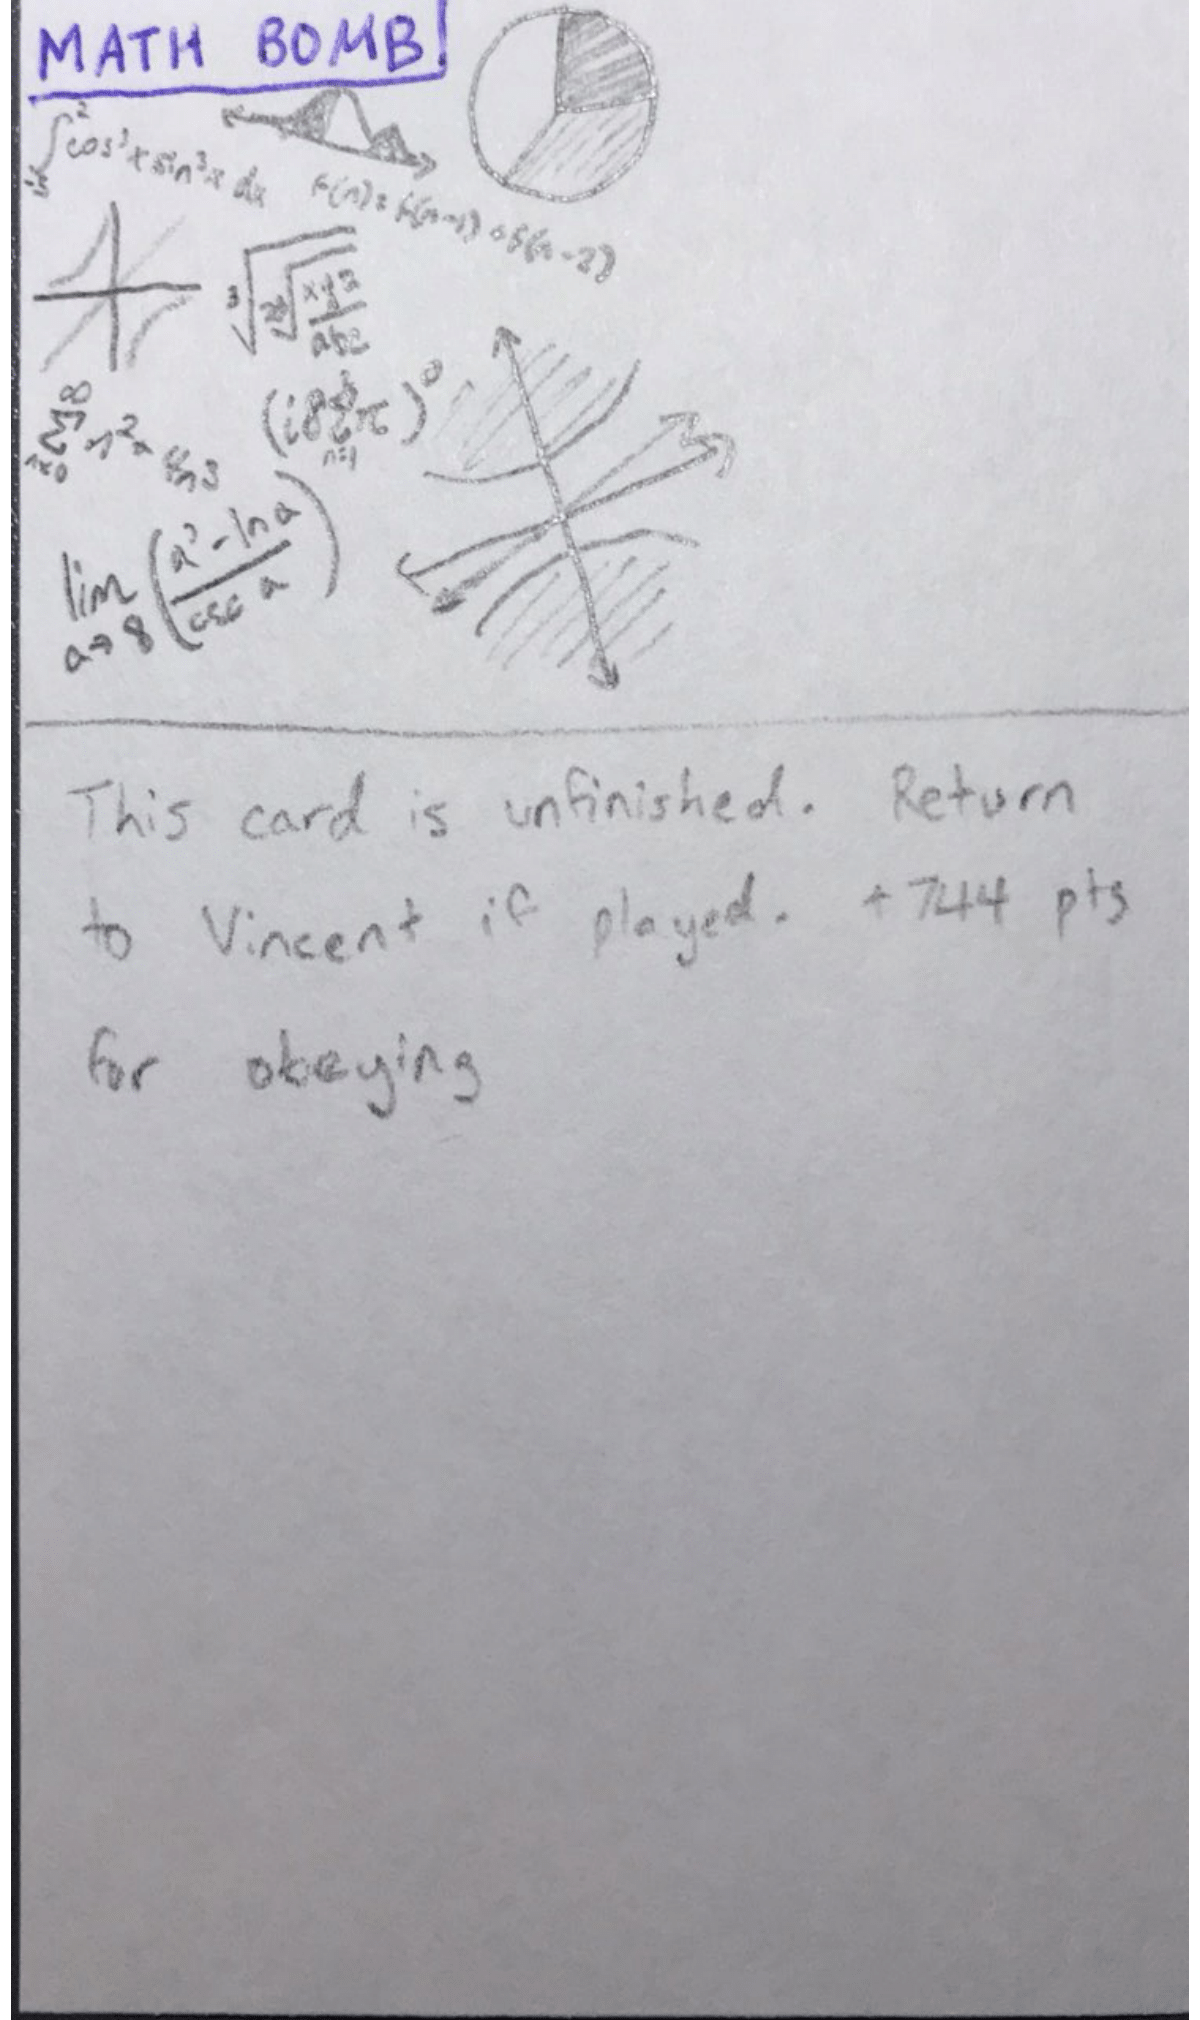 MATH BOMB!
cos³x sin³x dx
f(n) = f(n-1) + f(n-2)
3 xyz
abc
∞
Σ n²
n=0
(i8 Σ π)⁰
n=1
lim (a² - ln a
a→8 csc a)
This card is unfinished. Return
to Vincent if played. +744 pts
for obeying